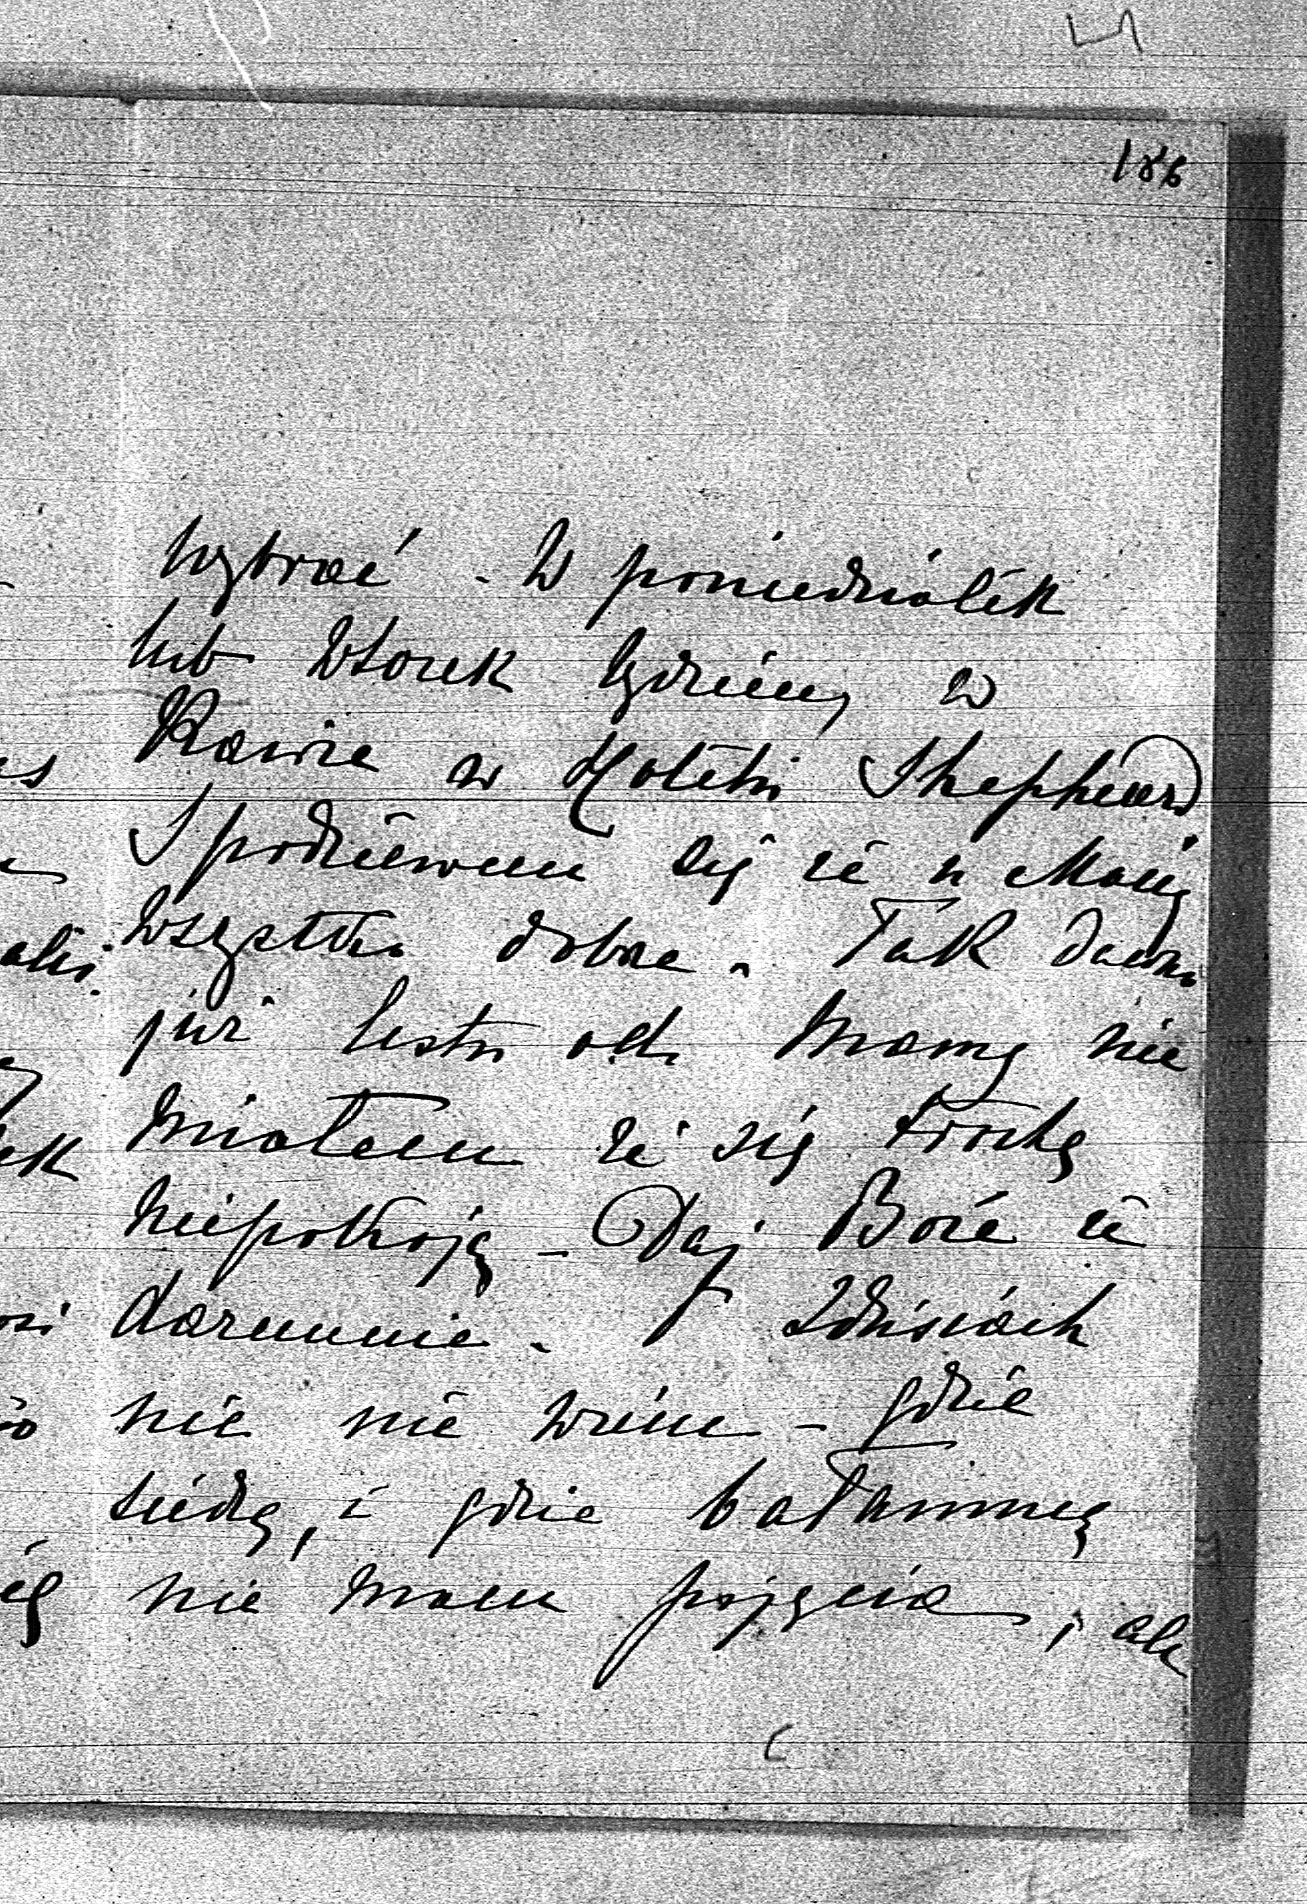 186
wybrać - W poniedziałek
lub wtorek będziemy w
Kairze w Hotelu Shephears
Spodziewam się że u Mamy
wszystko dobrze. Tak dawno
już listu od Mamy nie
miałem że się trochę
niepokoję - Daj Boże że
daremnie. O Zdzisiach
nic nie wiem - gdzie
siedzą, i gdzie bałamucą
nie mam pojęcia, ale